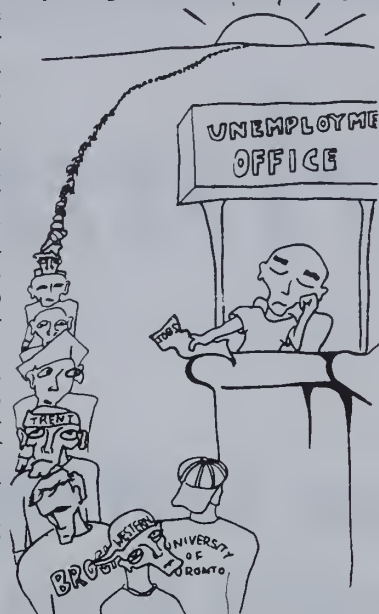 UNEMPLOYME
OFFICE
JOBS
TRENT
WESTERN
BROCK
UNIVERSITY
OF
TORONTO